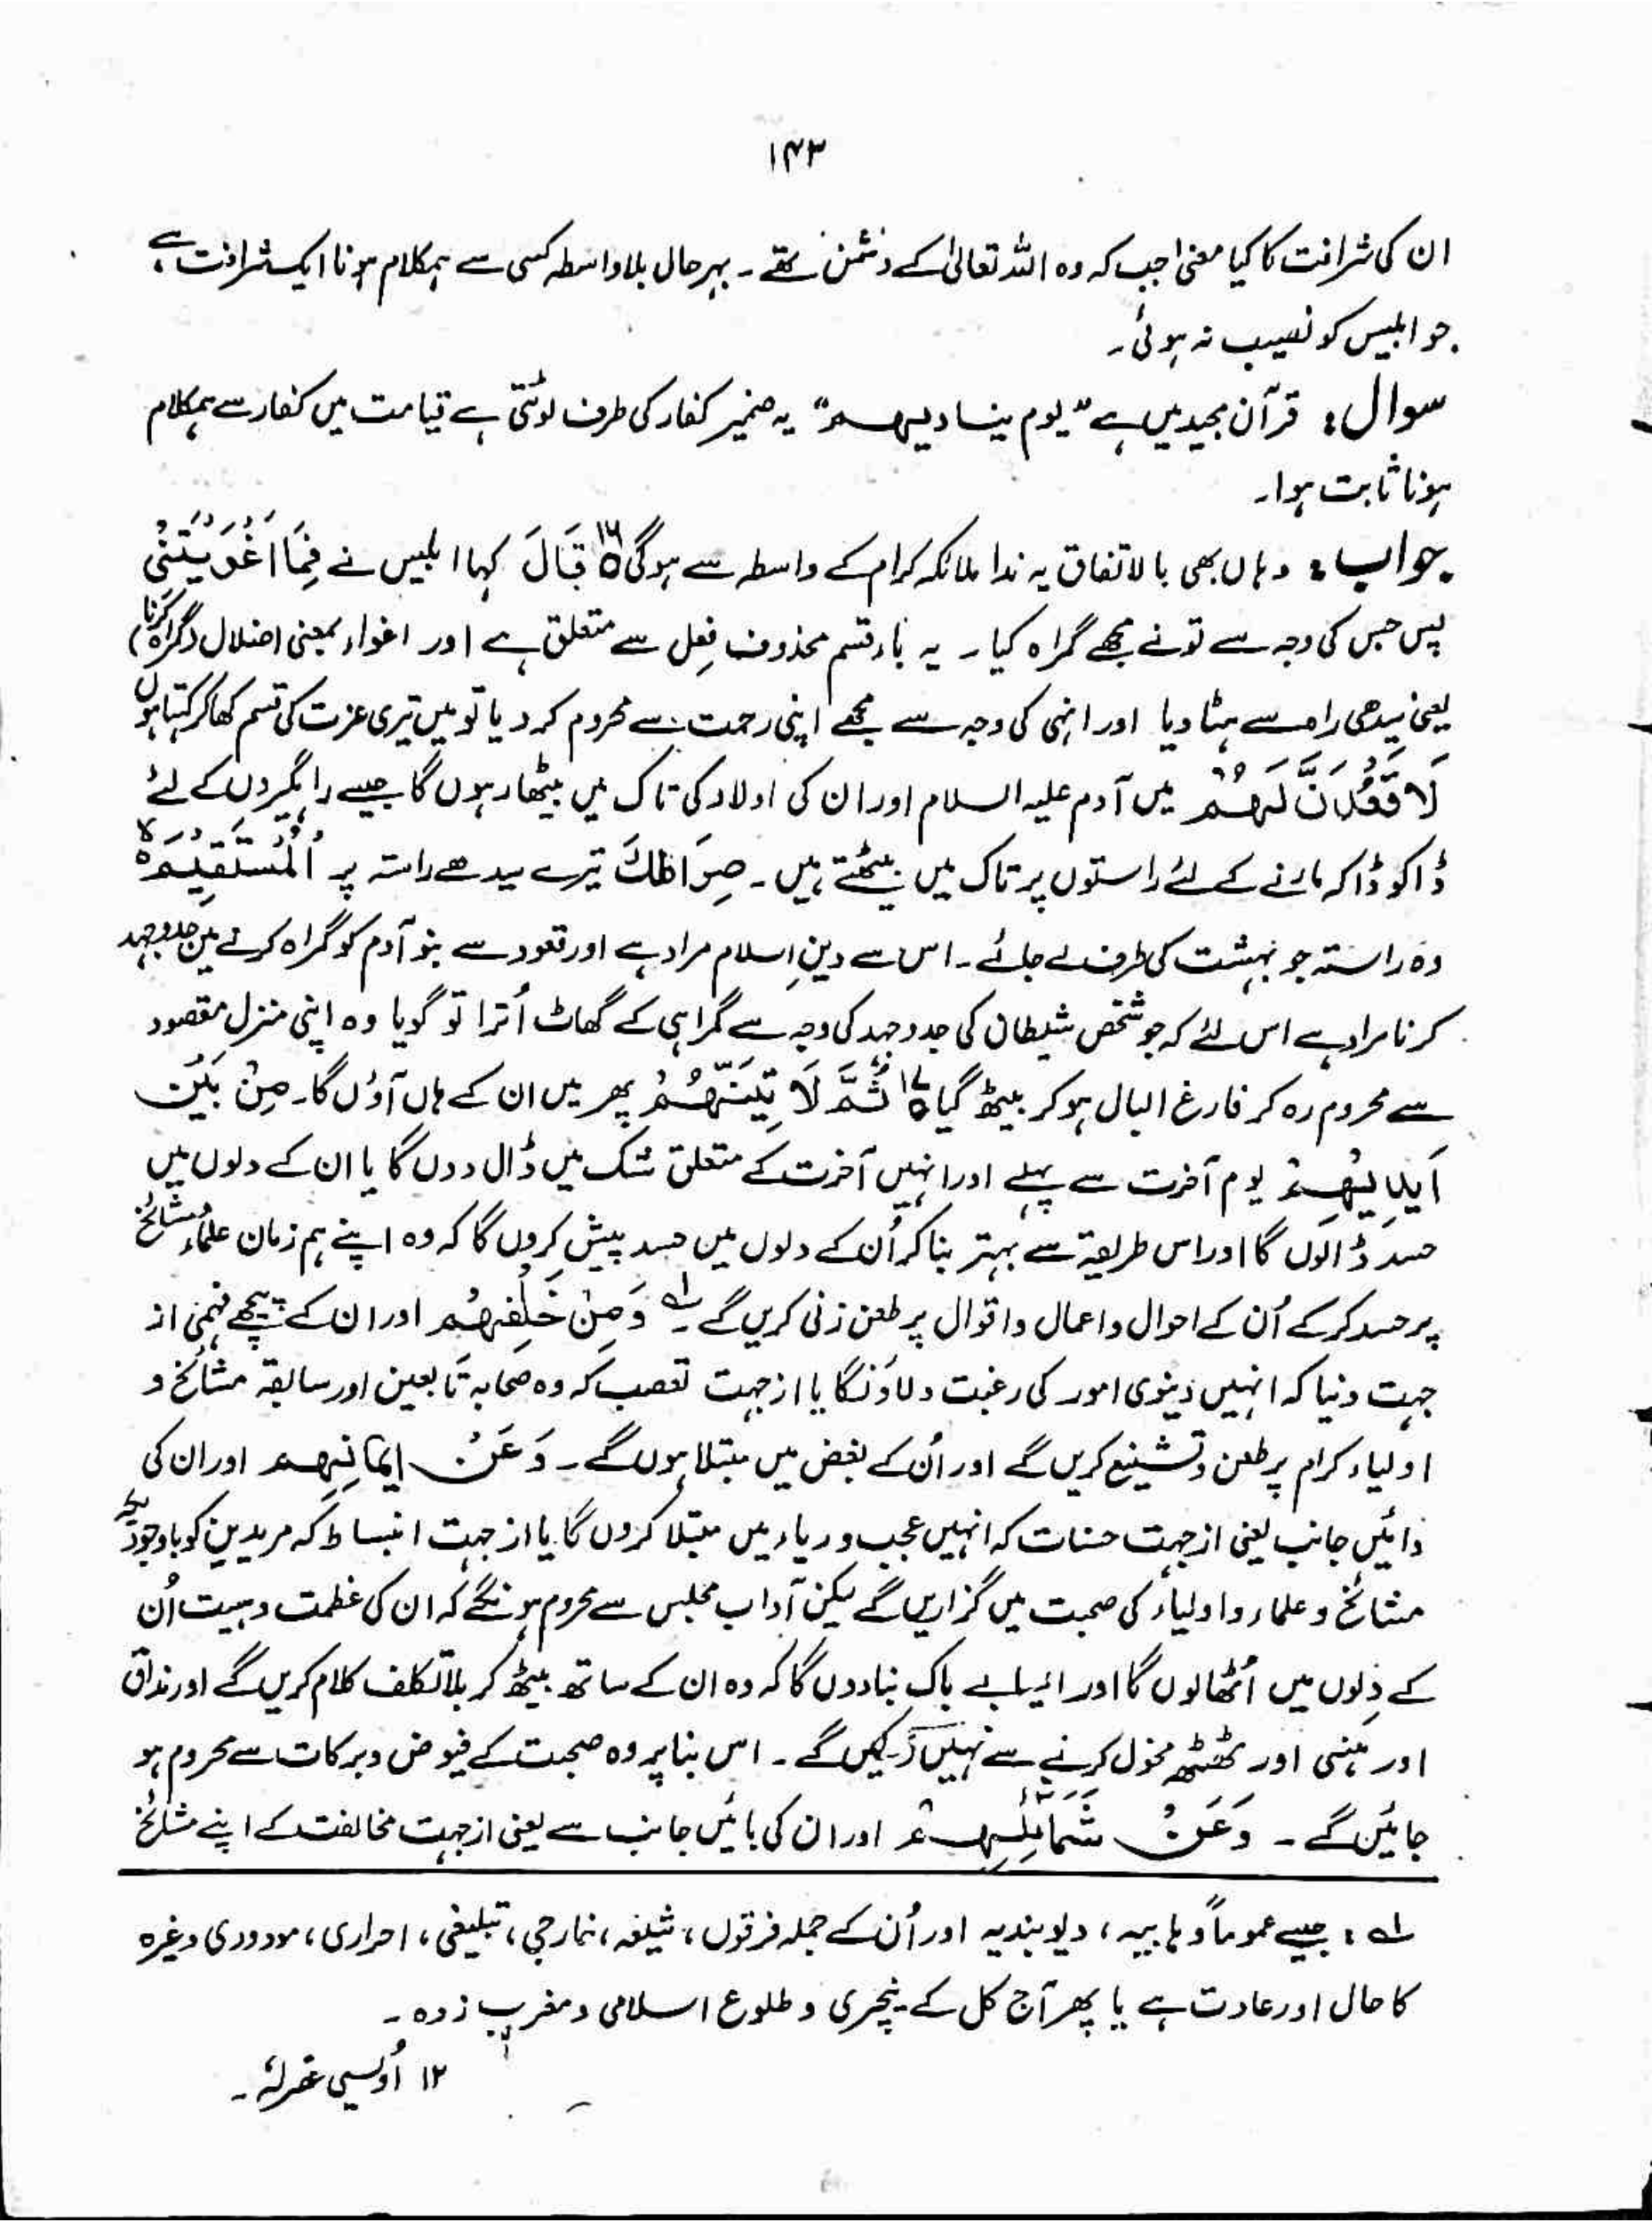 ۱۴۳
ان کی شرافت کا کیا معنیٰ جب کہ وہ اللہ تعالیٰ کے دشمن تھے ۔ بہرحال بلا واسطہ کسی سے ہمکلام ہونا ایک شرافت ہے ،
جو ابلیس کو نصیب نہ ہوئی ۔
سوال : قرآن مجید میں ہے "یوم ینادیہم" یہ ضمیر کفار کی طرف لوٹتی ہے قیامت میں کفار سے ہمکلام
ہونا ثابت ہوا۔
جواب : وہاں بھی بالاتفاق یہ ندا ملائکہ کرام کے واسطہ سے ہوگی ۱۶ قَالَ کہا ابلیس نے فَبِمَا اَغْوَیْتَنِیْ
پس جس کی وجہ سے تو نے مجھے گمراہ کیا ۔ یہ باء قسم محذوف فعل سے متعلق ہے اور اغواء بمعنی اضلال (گمراہ کرنا)
یعنی سیدھی راہ سے ہٹا دیا اور انہی کی وجہ سے مجھے اپنی رحمت سے محروم کر دیا تو میں تیری عزت کی قسم کھا کر کہتا ہوں
لَاَقْعُدَنَّ لَہُمْ میں آدم علیہ السلام اور ان کی اولاد کی تاک میں بیٹھا رہوں گا جیسے راہگیروں کے لئے
ڈاکو ڈاکہ مارنے کے لئے راستوں پر تاک میں بیٹھتے ہیں ۔ صِرَاطَکَ تیرے سیدھے راستہ پر الْمُسْتَقِیْمَ ہ
وہ راستہ جو بہشت کی طرف لے جائے ۔ اس سے دینِ اسلام مراد ہے اور قعود سے بنو آدم کو گمراہ کرنے میں جدوجہد
کرنا مراد ہے اس لئے کہ جو شخص شیطان کی جدوجہد کی وجہ سے گمراہی کے گھاٹ اُترا تو گویا وہ اپنی منزلِ مقصود
سے محروم رہ کر فارغ البال ہو کر بیٹھ گیا ۱۷ ثُمَّ لَاٰتِیَنَّہُمْ پھر میں ان کے ہاں آؤں گا ۔ مِنْ بَیْنِ
اَیْدِیْہِمْ یوم آخرت سے پہلے اور انہیں آخرت کے متعلق شک میں ڈال دوں گا یا ان کے دلوں میں
حسد ڈالوں گا اور اس طریقہ سے بہتر بنا کر اُن کے دلوں میں حسد پیش کروں گا کہ وہ اپنے ہم زمان علماء و مشائخ
پر حسد کر کے اُن کے احوال و اعمال و اقوال پر طعن زنی کریں گے ۱؎ وَمِنْ خَلْفِہِمْ اور ان کے پیچھے یعنی از
جہت دنیا کہ انہیں دنیوی امور کی رغبت دلاؤنگا یا از جہت تعصب کہ وہ صحابہ تابعین اور سابقہ مشائخ و
اولیاء کرام پر طعن و تشنیع کریں گے اور اُن کے بغض میں مبتلا ہوں گے ۔ وَعَنْ اَیْمَانِہِمْ اور ان کی
دائیں جانب یعنی از جہت حسنات کہ انہیں عجب و ریاء میں مبتلا کروں گا یا از جہت انبساط کہ مریدین کو باوجودیکہ
مشائخ و علماء و اولیاء کی صحبت میں گزاریں گے لیکن آداب مجلس سے محروم ہونگے کہ ان کی عظمت و ہیبت اُن
کے دِلوں میں اُٹھالوں گا اور ایسا بے باک بنا دوں گا کہ وہ ان کے ساتھ بیٹھ کر بلا تکلف کلام کریں گے اور مذاق
اور ہنسی اور ٹھٹھہ مخول کرنے سے نہیں رکیں گے ۔ اس بنا پر وہ صحبت کے فیوض و برکات سے محروم ہو
جائیں گے ۔ وَعَنْ شَمَآئِلِہِمْ اور ان کی بائیں جانب سے یعنی از جہت مخالفت کے اپنے مشائخ
۱؎ : جیسے عموماً وہابیہ ، دیوبندیہ اور اُن کے جملہ فرقوں ، شیعہ ، خارجی ، تبلیغی ، احراری ، مودودی وغیرہ
کا حال اور عادت ہے یا پھر آج کل کے نیچری و طلوع اسلامی و مغرب زدہ ۔
۱۲ اُویسی غفرلہٗ ۔